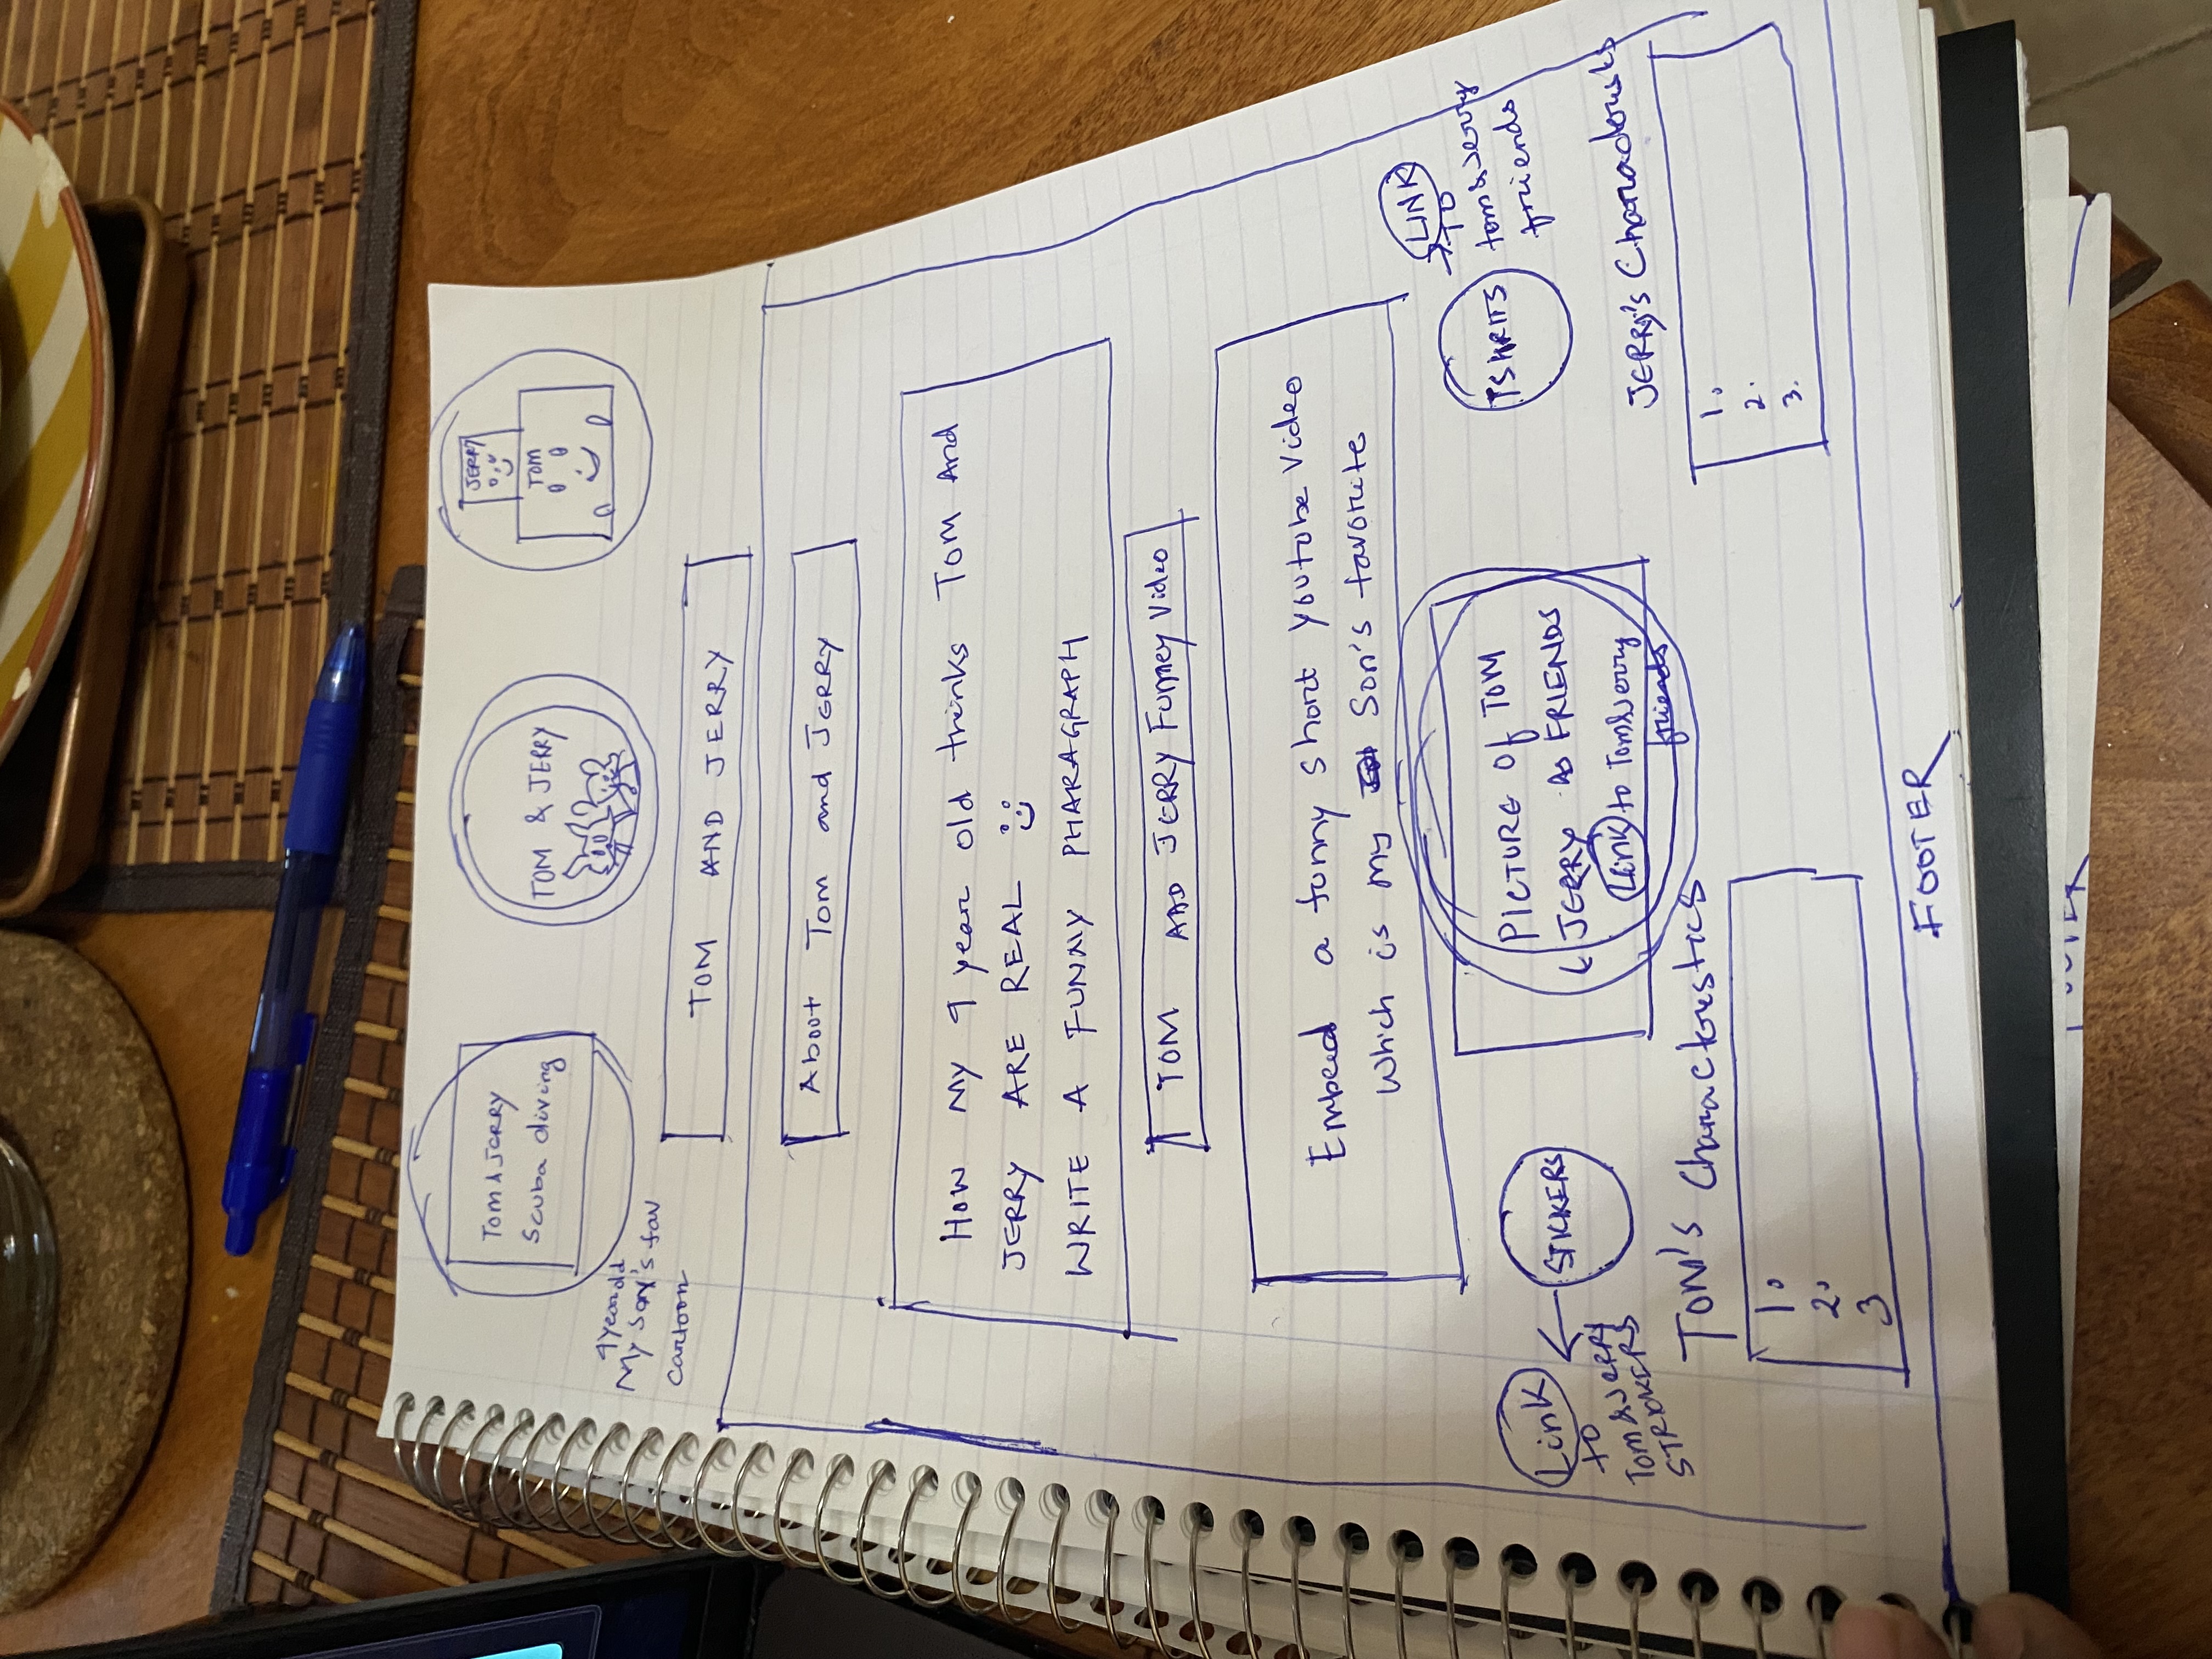 TOM & JERRY
Scuba diving
TOM & JERRY
JERRY
TOM
9 year old
My son's fav
cartoon
TOM AND JERRY
About Tom and JERRY
HOW MY 9 year old thinks TOM And
JERRY ARE REAL
WRITE A FUNNY PHARAGRAPH
TOM AND JERRY Funney Video
Embeed a funny short youtube video
which is my Son's favorite
Link
to
Tom & JERRY
STRICKERS
STICKERS
PICTURE of TOM
& JERRY AS FRIENDS
Link to Tom&Jerry
friends
TSHRITS
LINK
TO
tom & Jerry
friends
TOM'S Characterstics
1.
2.
3
JERRY'S Characterstics
1.
2.
3.
FOOTER
FOOTER